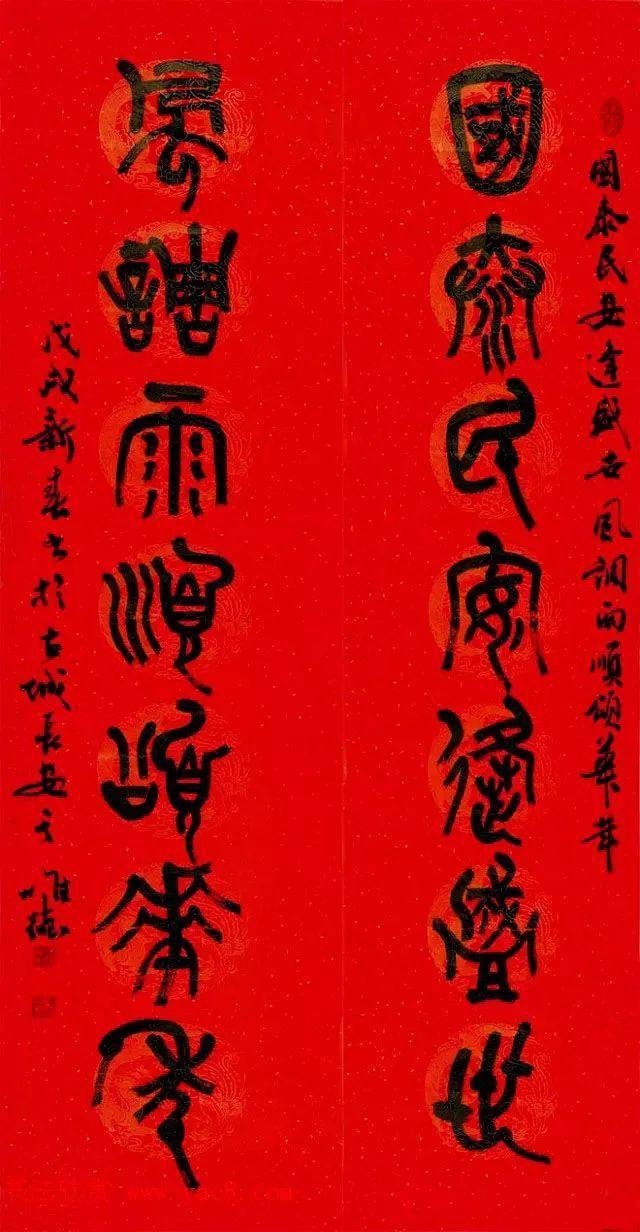 國泰民安逢盛世風調雨順頌華年
國泰民安逢盛世
風調雨順頌華年
戊戌新春書於古城長安